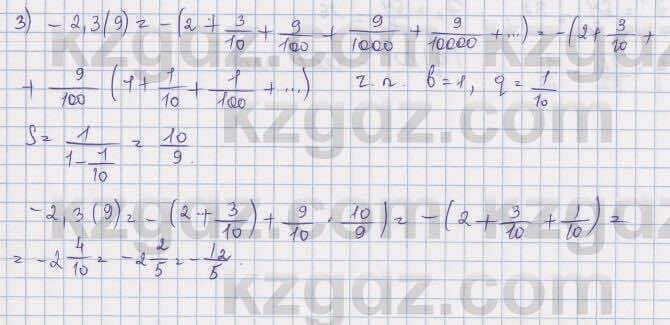 3) -2,3(9) = -(2 + 3/10 + 9/100 + 9/1000 + 9/10000 + ...) = -(2+ 3/10 +
+ 9/100 (1 + 1/10 + 1/100 + ...) г.п. b=1, q = 1/10
S = 1/(1 - 1/10) = 10/9.
-2,3(9) = -(2 + 3/10) + 9/10 · 10/9) = -(2 + 3/10 + 1/10) =
= -2 4/10 = -2 2/5 = -12/5.
kzgdz.com
kzgdz.com
kzgdz.com
kzgdz.com